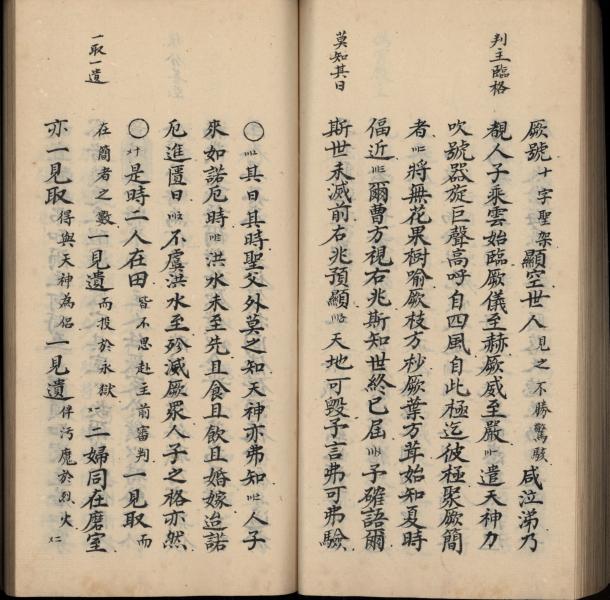 判主臨格
厥號十字聖架顯空世人見之不勝驚駭咸泣涕乃
覩人子乘雲始臨厥儀至赫厥威至嚴遣天神力
吹號器旋巨聲高呼自四風自此極迄彼極聚厥簡
者將無花果樹喻厥枝方杪厥葉方茸始知夏時
偪近爾曹方視右兆斯知世終已屆予確語爾
莫知其日
斯世未滅前右兆預顯天地可毀予言弗可弗驗
〇其日其時聖父外莫之知天神亦弗知人子
來如諾厄時洪水未至先且食且飲且婚嫁迨諾
厄進匱日不虞洪水至殄滅厥眾人子之格亦然
〇是時二人在田皆不思赴主前審判一見取而
一取一遺
在簡者之數一見遺而投於永獄二婦同在磨室
亦一見取得與天神為侶一見遺伴汚魔於烈火